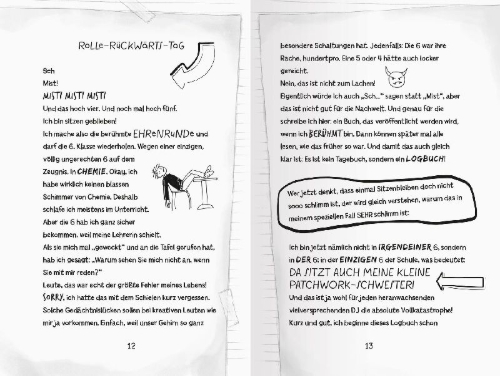 ROLLE-RÜCKWÄRTS-TAG
Sch
Mist!
MIST! MIST! MIST!
Und das hoch vier. Und noch mal hoch fünf.
Ich bin sitzen geblieben!
Ich mache also die berühmte EHRENRUNDE und
darf die 6. Klasse wiederholen. Wegen einer einzigen,
völlig ungerechten 6 auf dem
Zeugnis. In CHEMIE. Okay, ich
habe wirklich keinen blassen
Schimmer von Chemie. Deshalb
schlafe ich meistens im Unterricht.
Aber die 6 hab ich ganz sicher
bekommen, weil meine Lehrerin schielt.
Als sie mich mal „geweckt“ und an die Tafel gerufen hat,
hab ich gesagt: „Warum sehen Sie mich nicht an, wenn
Sie mit mir reden?“
Leute, das war echt der größte Fehler meines Lebens!
SORRY, ich hatte das mit dem Schielen kurz vergessen.
Solche Gedächtnislücken sollen bei kreativen Leuten wie
mir ja vorkommen. Einfach, weil unser Gehirn so ganz
12
besondere Schaltungen hat. Jedenfalls: Die 6 war ihre
Rache, hundertpro. Eine 5 oder 4 hätte auch locker
gereicht.
Nein, das ist nicht zum Lachen!
Eigentlich würde ich auch „Sch...“ sagen statt „Mist“, aber
das ist nicht gut für die Nachwelt. Und genau für die
schreibe ich hier: ein Buch, das veröffentlicht werden wird,
wenn ich BERÜHMT bin. Dann können später mal alle
lesen, wie das früher so war. Und damit das auch gleich
klar ist: Es ist kein Tagebuch, sondern ein LOGBUCH!
Wer jetzt denkt, dass einmal Sitzenbleiben doch nicht
sooo schlimm ist, der wird gleich verstehen, warum das in
meinem speziellen Fall SEHR schlimm ist:
Ich bin jetzt nämlich nicht in IRGENDEINER 6, sondern
in DER 6: in der EINZIGEN 6 der Schule, was bedeutet:
DA SITZT AUCH MEINE KLEINE
PATCHWORK-SCHWESTER!
Und das ist ja wohl für jeden heranwachsenden
vielversprechenden DJ die absolute Vollkatastrophe!
Kurz und gut, ich beginne dieses Logbuch schon
13